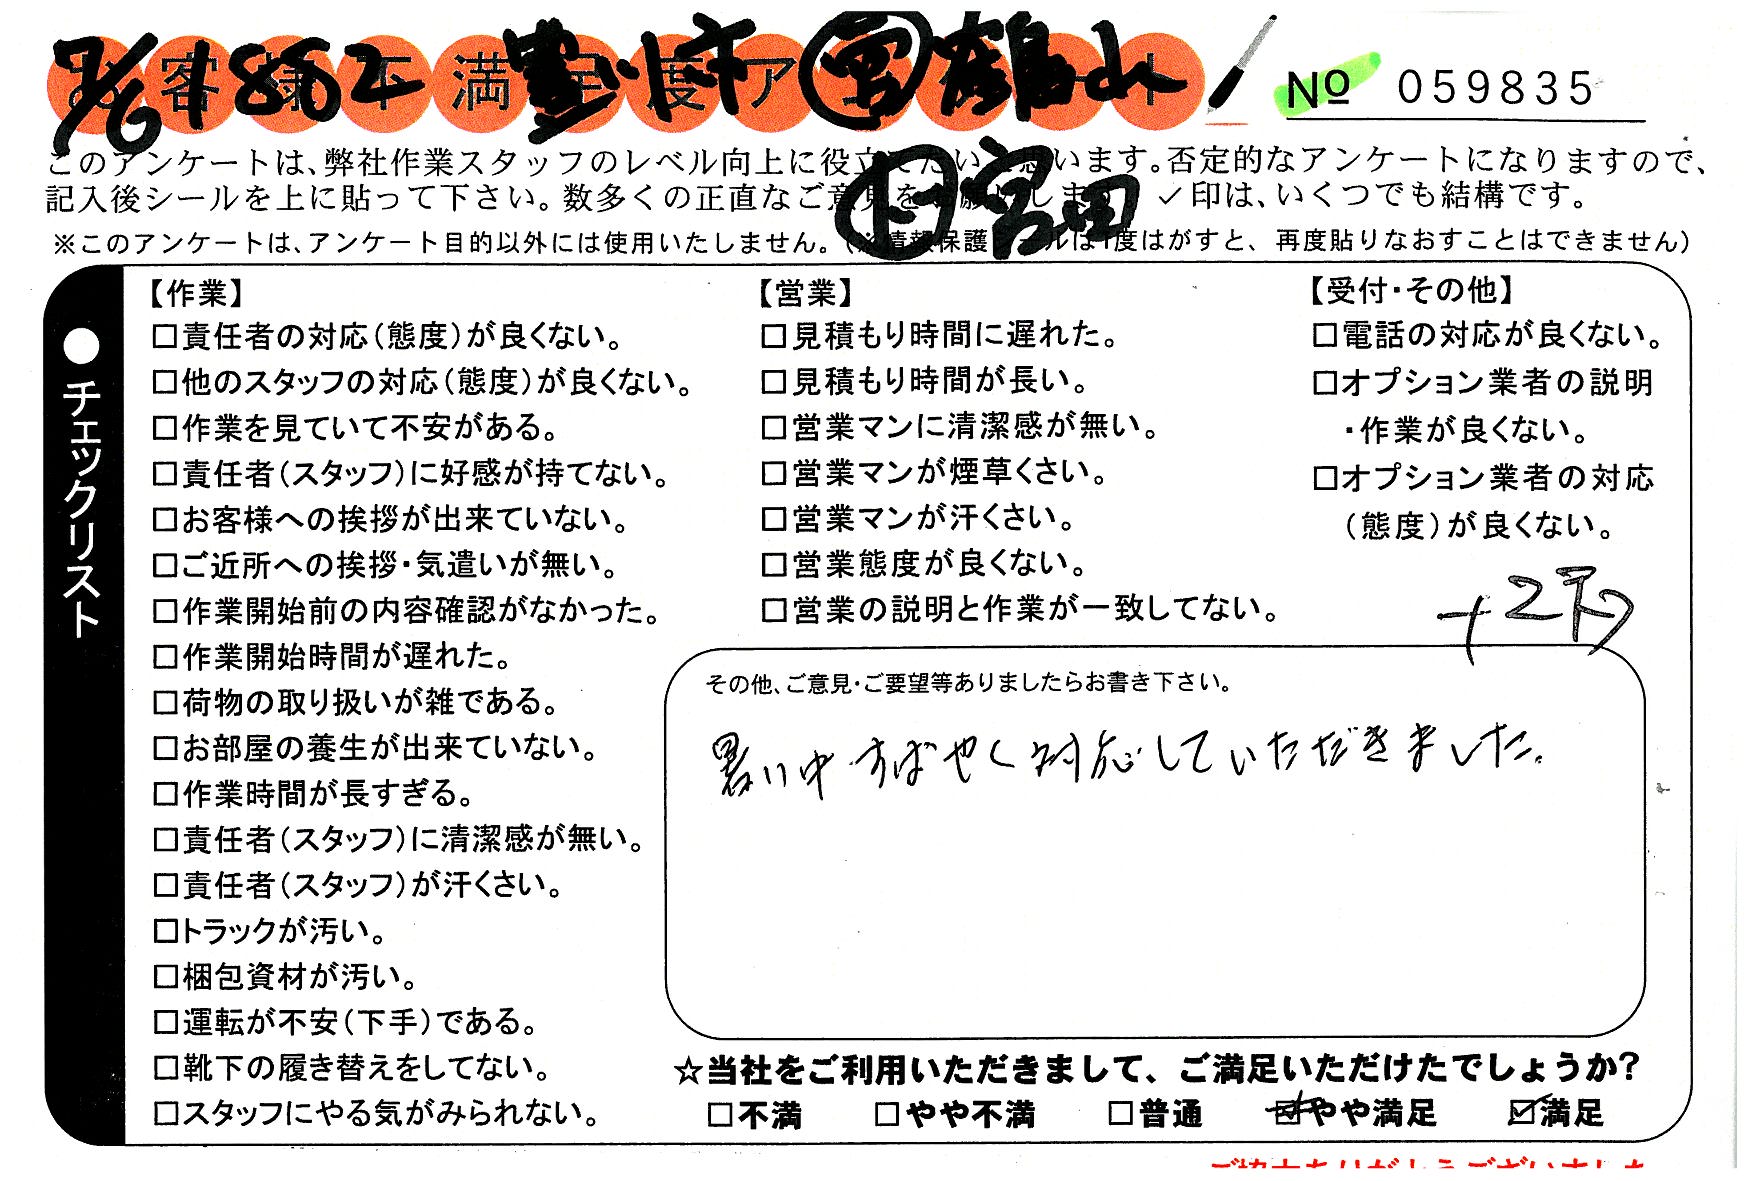 7/6 1862 豊川市 営
お客様不満足度アンケート
No 059835
このアンケートは、弊社作業スタッフのレベル向上に役立てたいと思います。否定的なアンケートになりますので、
記入後シールを上に貼って下さい。数多くの正直なご意見をお願いします。 ✓印は、いくつでも結構です。
宮田
※このアンケートは、アンケート目的以外には使用いたしません。(※情報保護シールは1度はがすと、再度貼りなおすことはできません)
●チェックリスト
【作業】
□責任者の対応(態度)が良くない。
□他のスタッフの対応(態度)が良くない。
□作業を見ていて不安がある。
□責任者(スタッフ)に好感が持てない。
□お客様への挨拶が出来ていない。
□ご近所への挨拶・気遣いが無い。
□作業開始前の内容確認がなかった。
□作業開始時間が遅れた。
□荷物の取り扱いが雑である。
□お部屋の養生が出来ていない。
□作業時間が長すぎる。
□責任者(スタッフ)に清潔感が無い。
□責任者(スタッフ)が汗くさい。
□トラックが汚い。
□梱包資材が汚い。
□運転が不安(下手)である。
□靴下の履き替えをしてない。
□スタッフにやる気がみられない。
【営業】
□見積もり時間に遅れた。
□見積もり時間が長い。
□営業マンに清潔感が無い。
□営業マンが煙草くさい。
□営業マンが汗くさい。
□営業態度が良くない。
□営業の説明と作業が一致してない。
【受付・その他】
□電話の対応が良くない。
□オプション業者の説明
・作業が良くない。
□オプション業者の対応
(態度)が良くない。
その他、ご意見・ご要望等ありましたらお書き下さい。
暑い中 すばやく対応していただきました。
☆当社をご利用いただきまして、ご満足いただけたでしょうか?
□不満 □やや不満 □普通 ☑やや満足 ☑満足
ご協力ありがとうございました